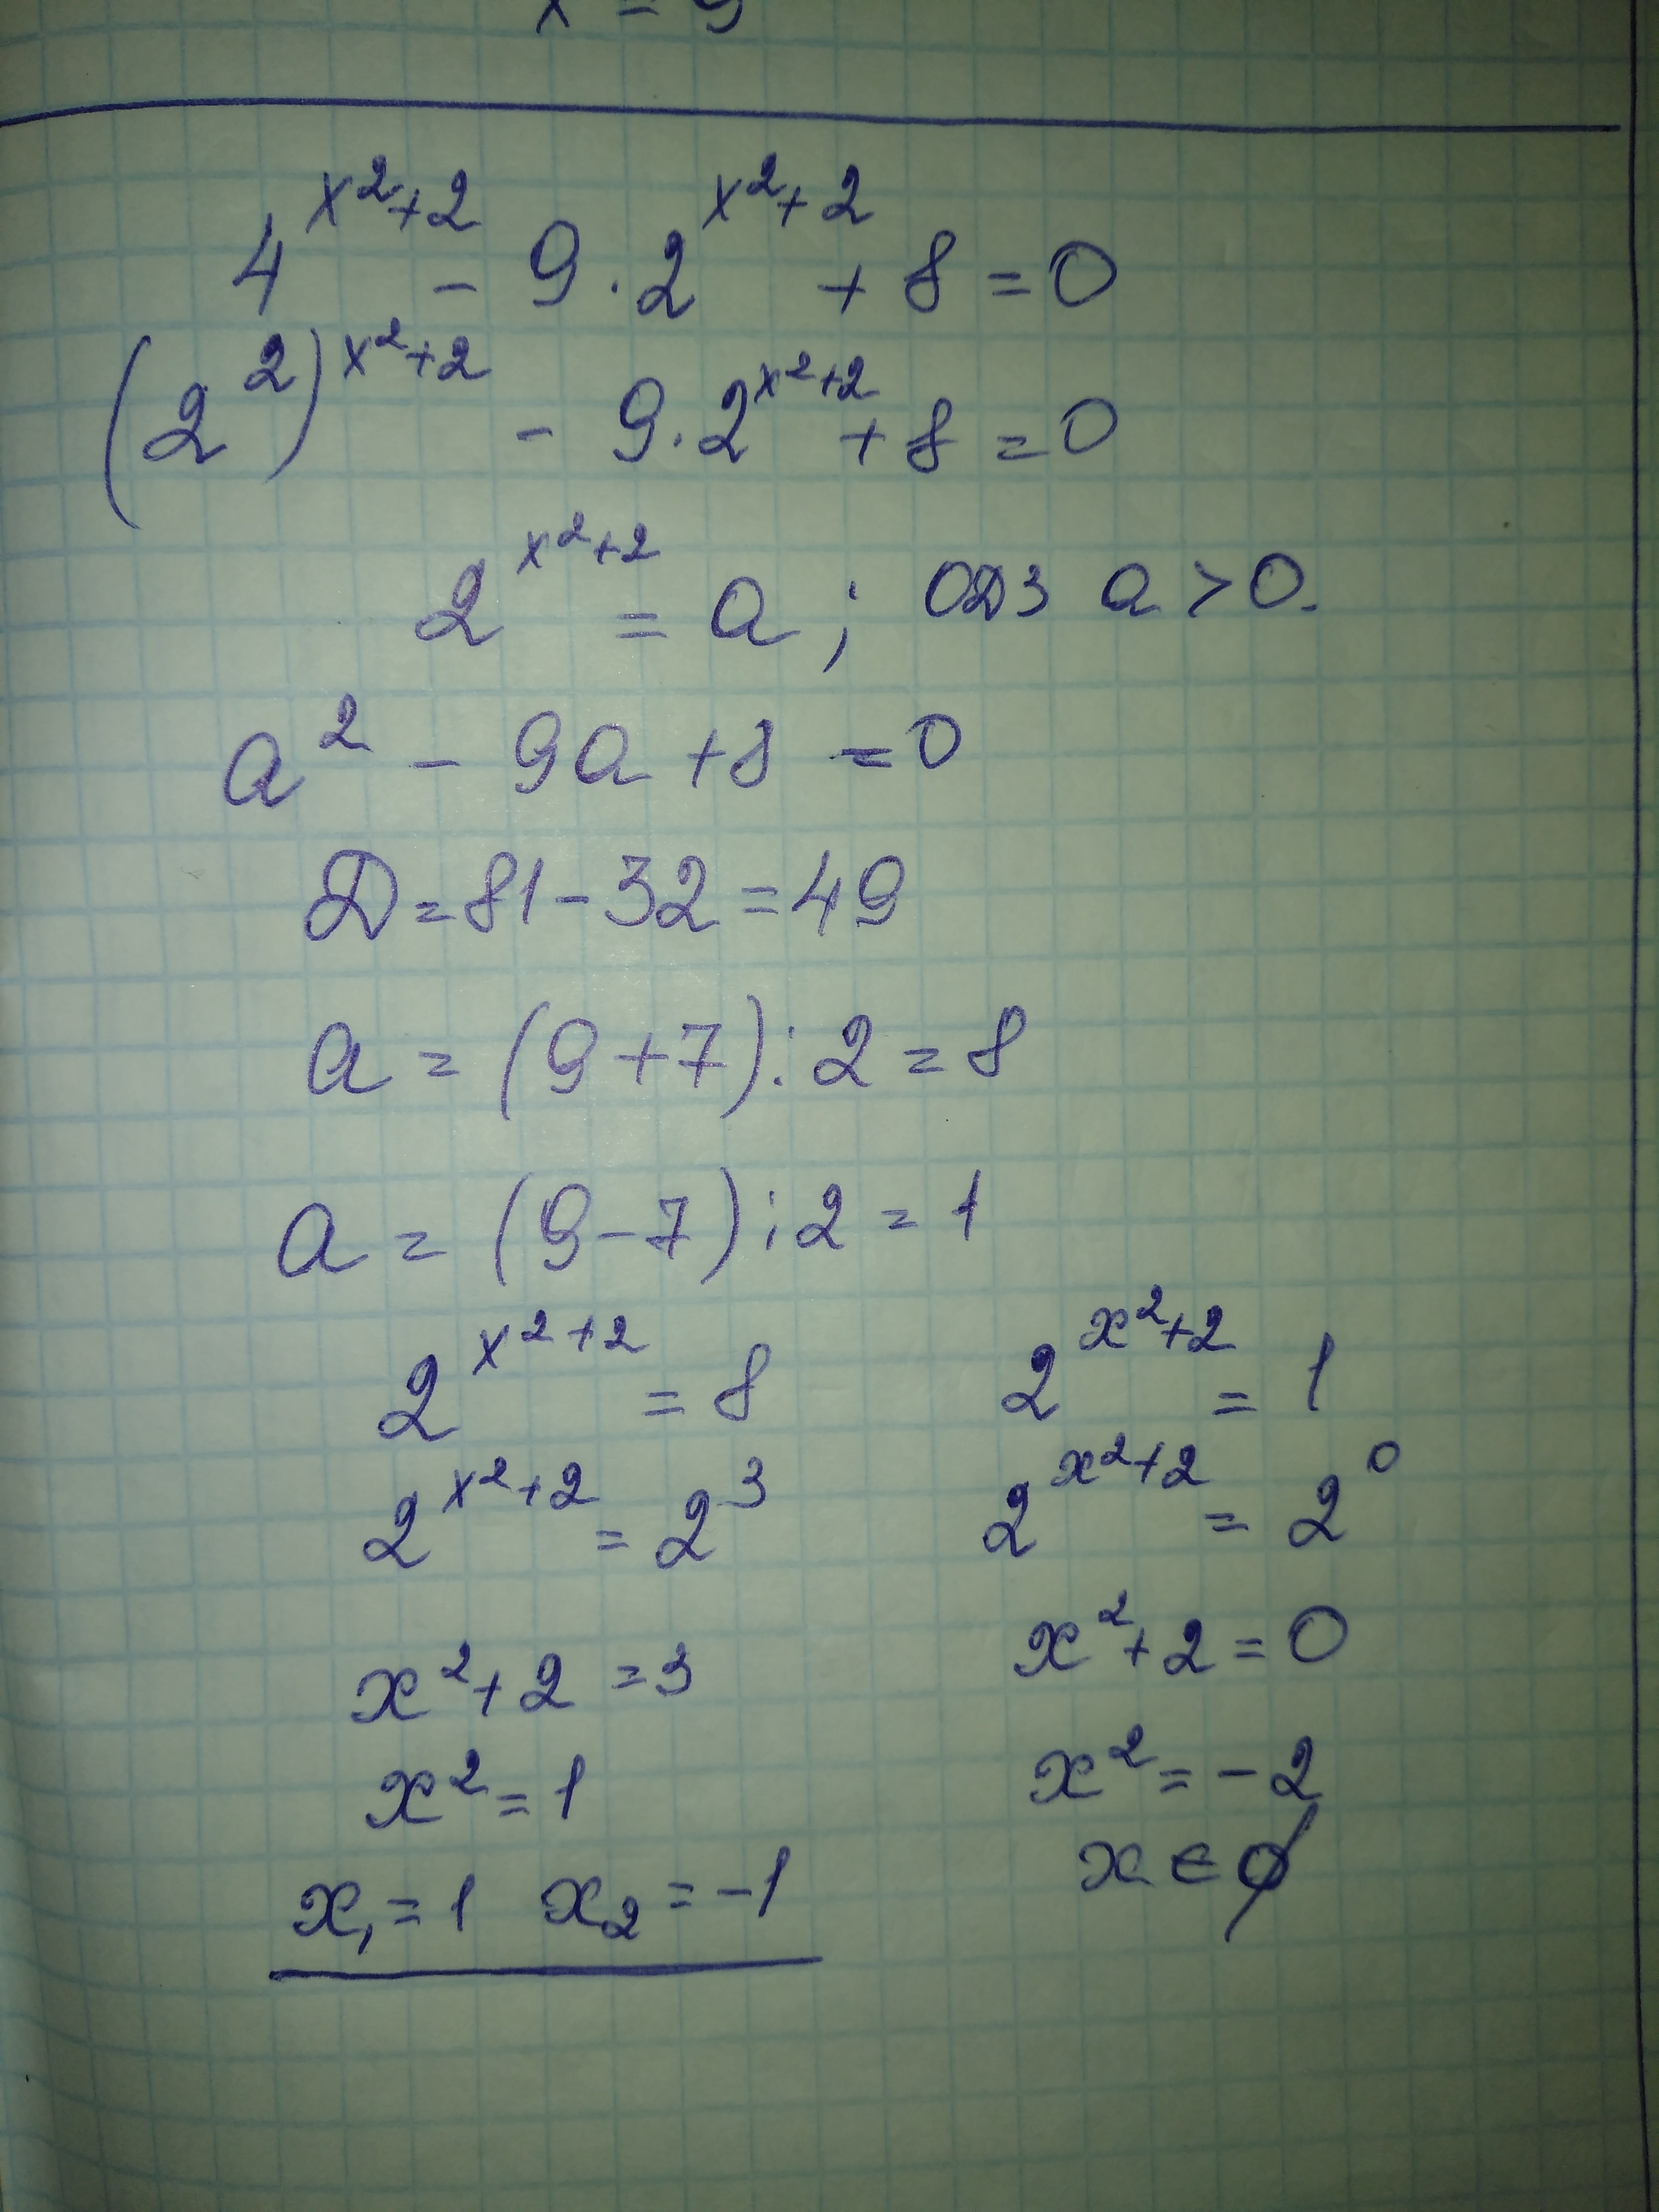 x = 9
4^{x^2+2} - 9 · 2^{x^2+2} + 8 = 0
(2^2)^{x^2+2} - 9 · 2^{x^2+2} + 8 = 0
2^{x^2+2} = a ; ОДЗ a > 0.
a^2 - 9a + 8 = 0
Д = 81 - 32 = 49
a = (9 + 7) : 2 = 8
a = (9 - 7) : 2 = 1
2^{x^2+2} = 8 2^{x^2+2} = 1
2^{x^2+2} = 2^3 2^{x^2+2} = 2^0
x^2 + 2 = 3 x^2 + 2 = 0
x^2 = 1 x^2 = -2
x_1 = 1 x_2 = -1 x ∈ ∅